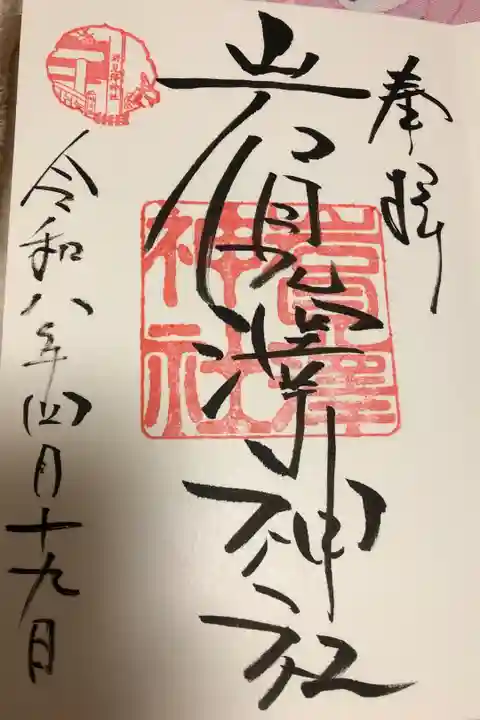 奉拝
岩見澤神社
岩見澤
神社
令和八年四月十九日